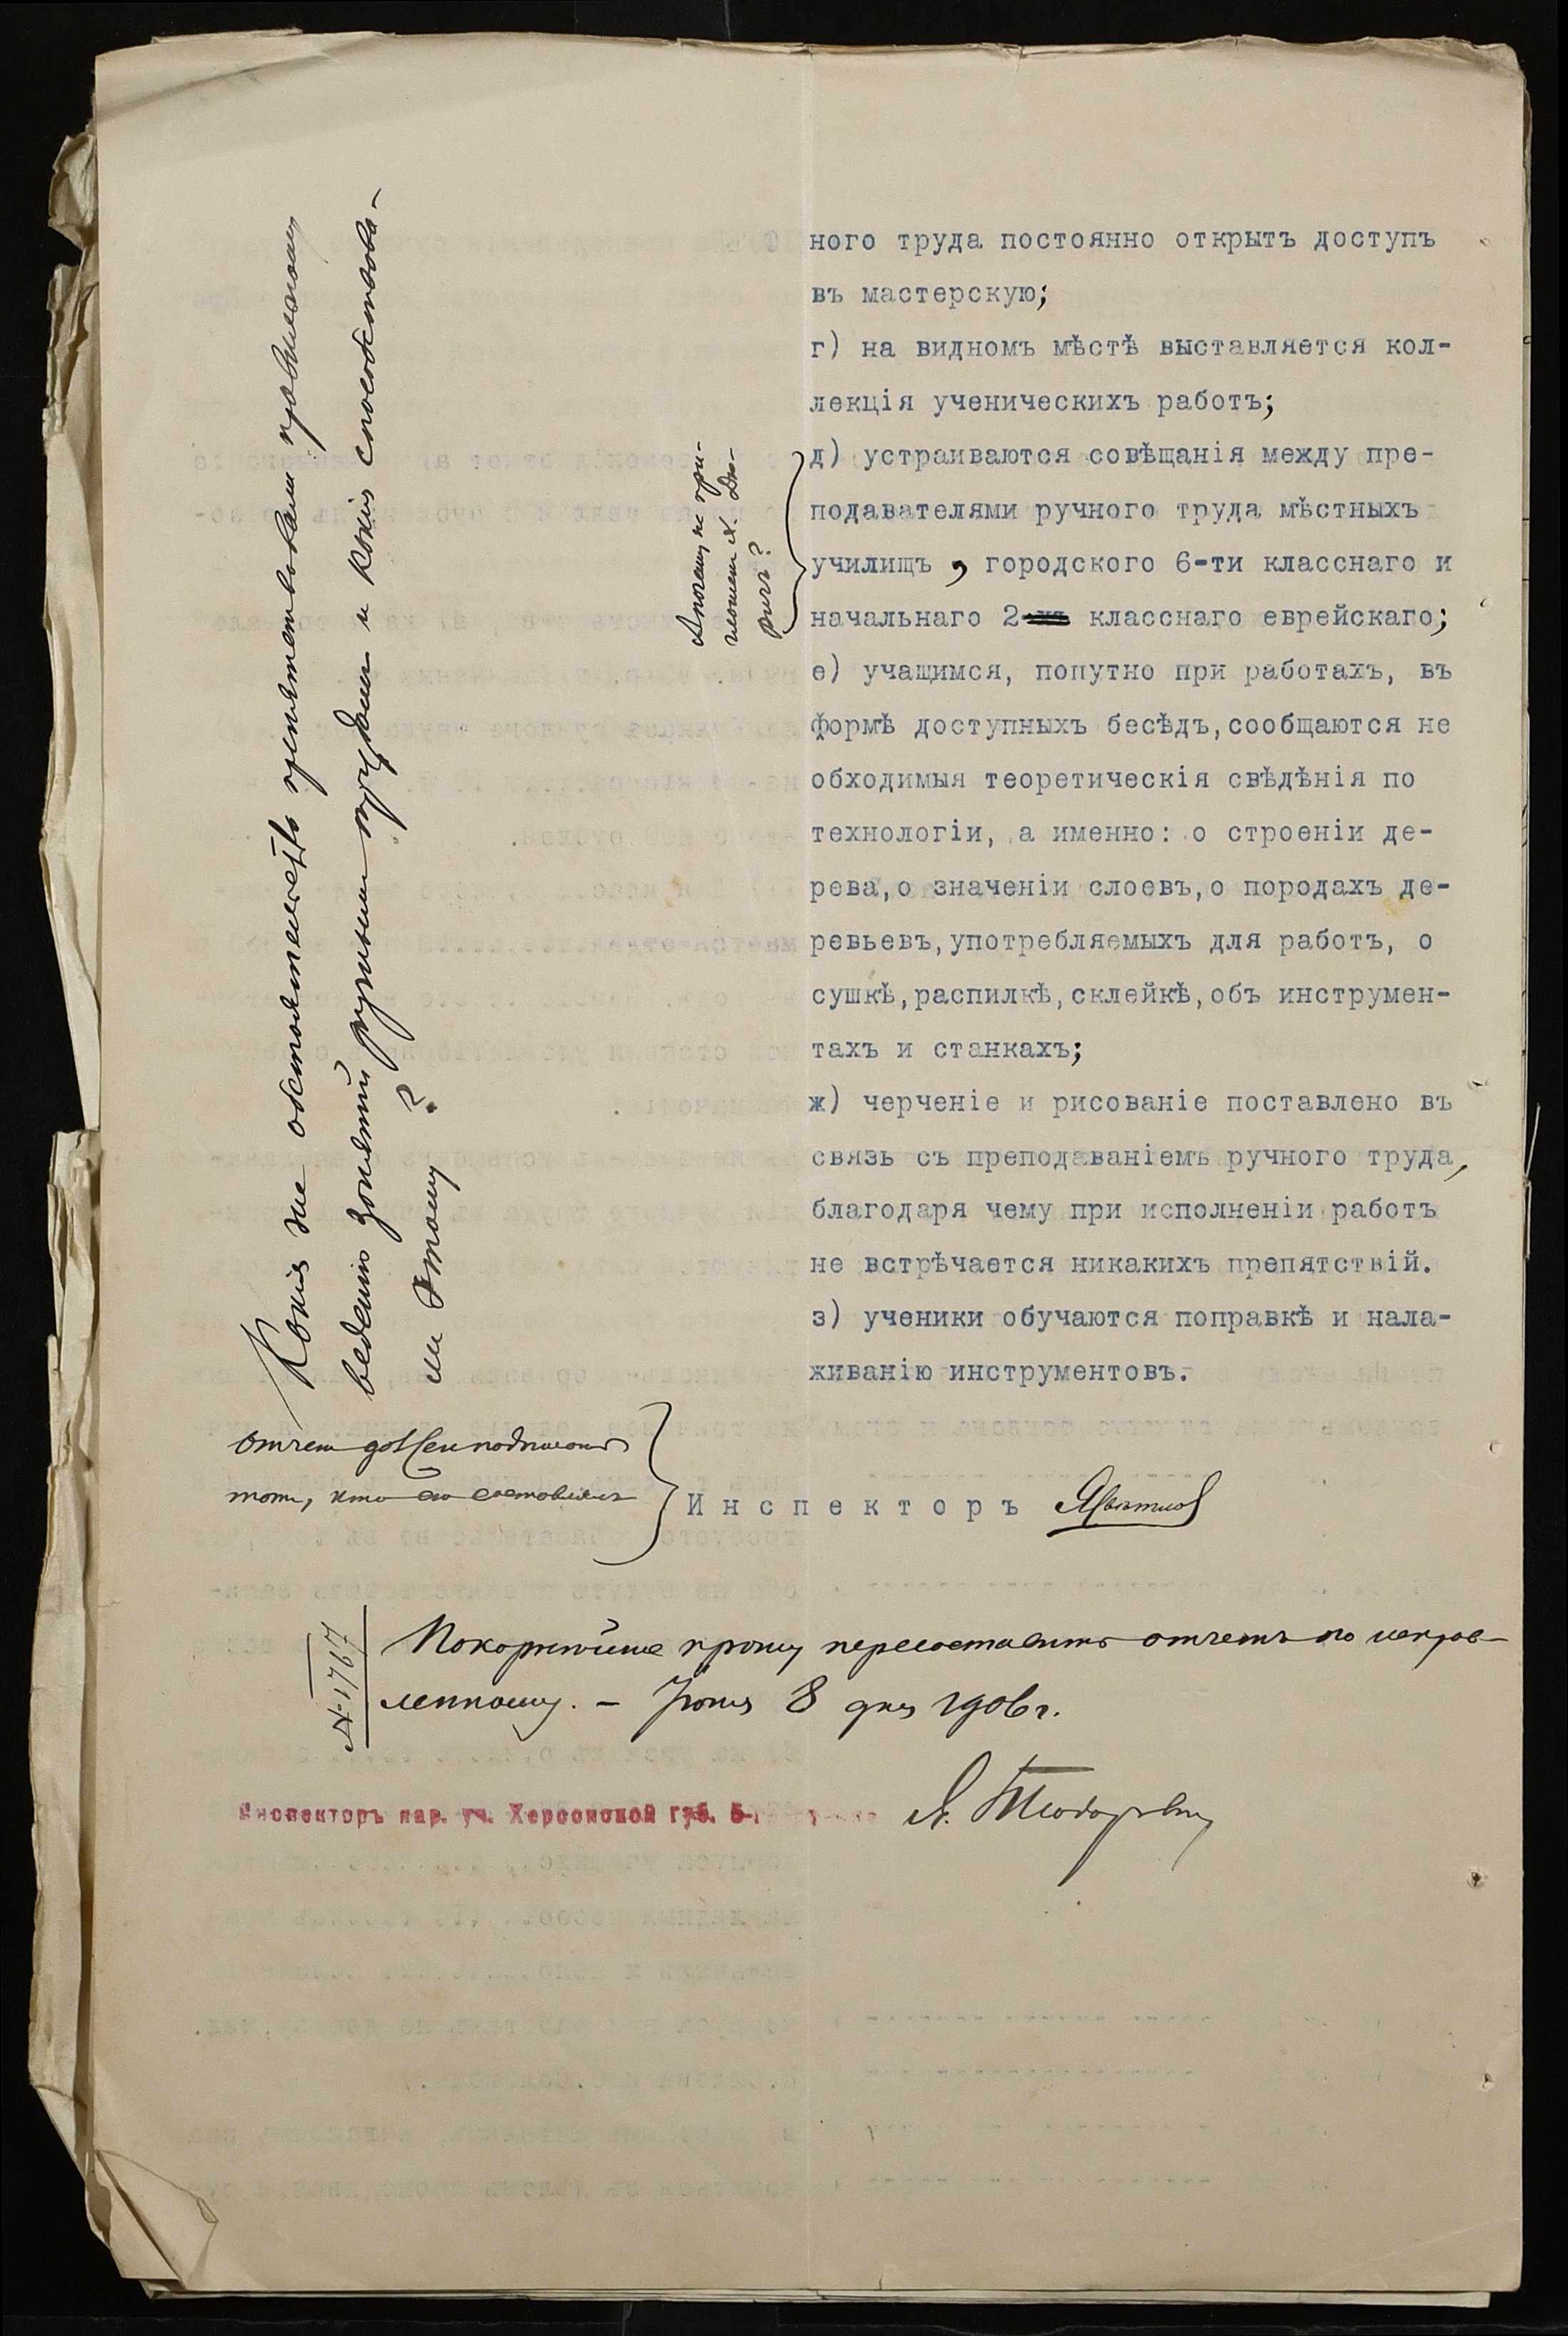 ного труда постоянно открытъ доступъ
въ мастерскую;
г) на видномъ мѣстѣ выставляется кол-
лекція ученическихъ работъ;
д) устраиваются совѣщанія между пре-
подавателями ручного труда мѣстныхъ
училищъ, городского 6-ти класснаго и
начальнаго 2 класснаго еврейскаго;
е) учащимся, попутно при работахъ, въ
формѣ доступныхъ бесѣдъ, сообщаются не
обходимыя теоретическія свѣдѣнія по
технологіи, а именно: о строеніи де-
рева, о значеніи слоевъ, о породахъ де-
ревьевъ, употребляемыхъ для работъ, о
сушкѣ, распилкѣ, склейкѣ, объ инструмен-
тахъ и станкахъ;
ж) черченіе и рисованіе поставлено въ
связь съ преподаваніемъ ручного труда,
благодаря чему при исполненіи работъ
не встрѣчается никакихъ препятствій.
з) ученики обучаются поправкѣ и нала-
живанію инструментовъ.
А почему не при-
глашен
Какія же обстоятельства препятствовали правильному
веденію занятій ручнымъ трудомъ и какія способствова-
ли этому?
Отчет должен подписать
тотъ, кто его составлялъ
Инспекторъ
№ 1767
Покорнѣйше прошу пересоставить отчетъ по исправ-
ленному. - Іюня 8 дня 1906 г.
Инспекторъ нар. уч. Херсонской губ. 5-